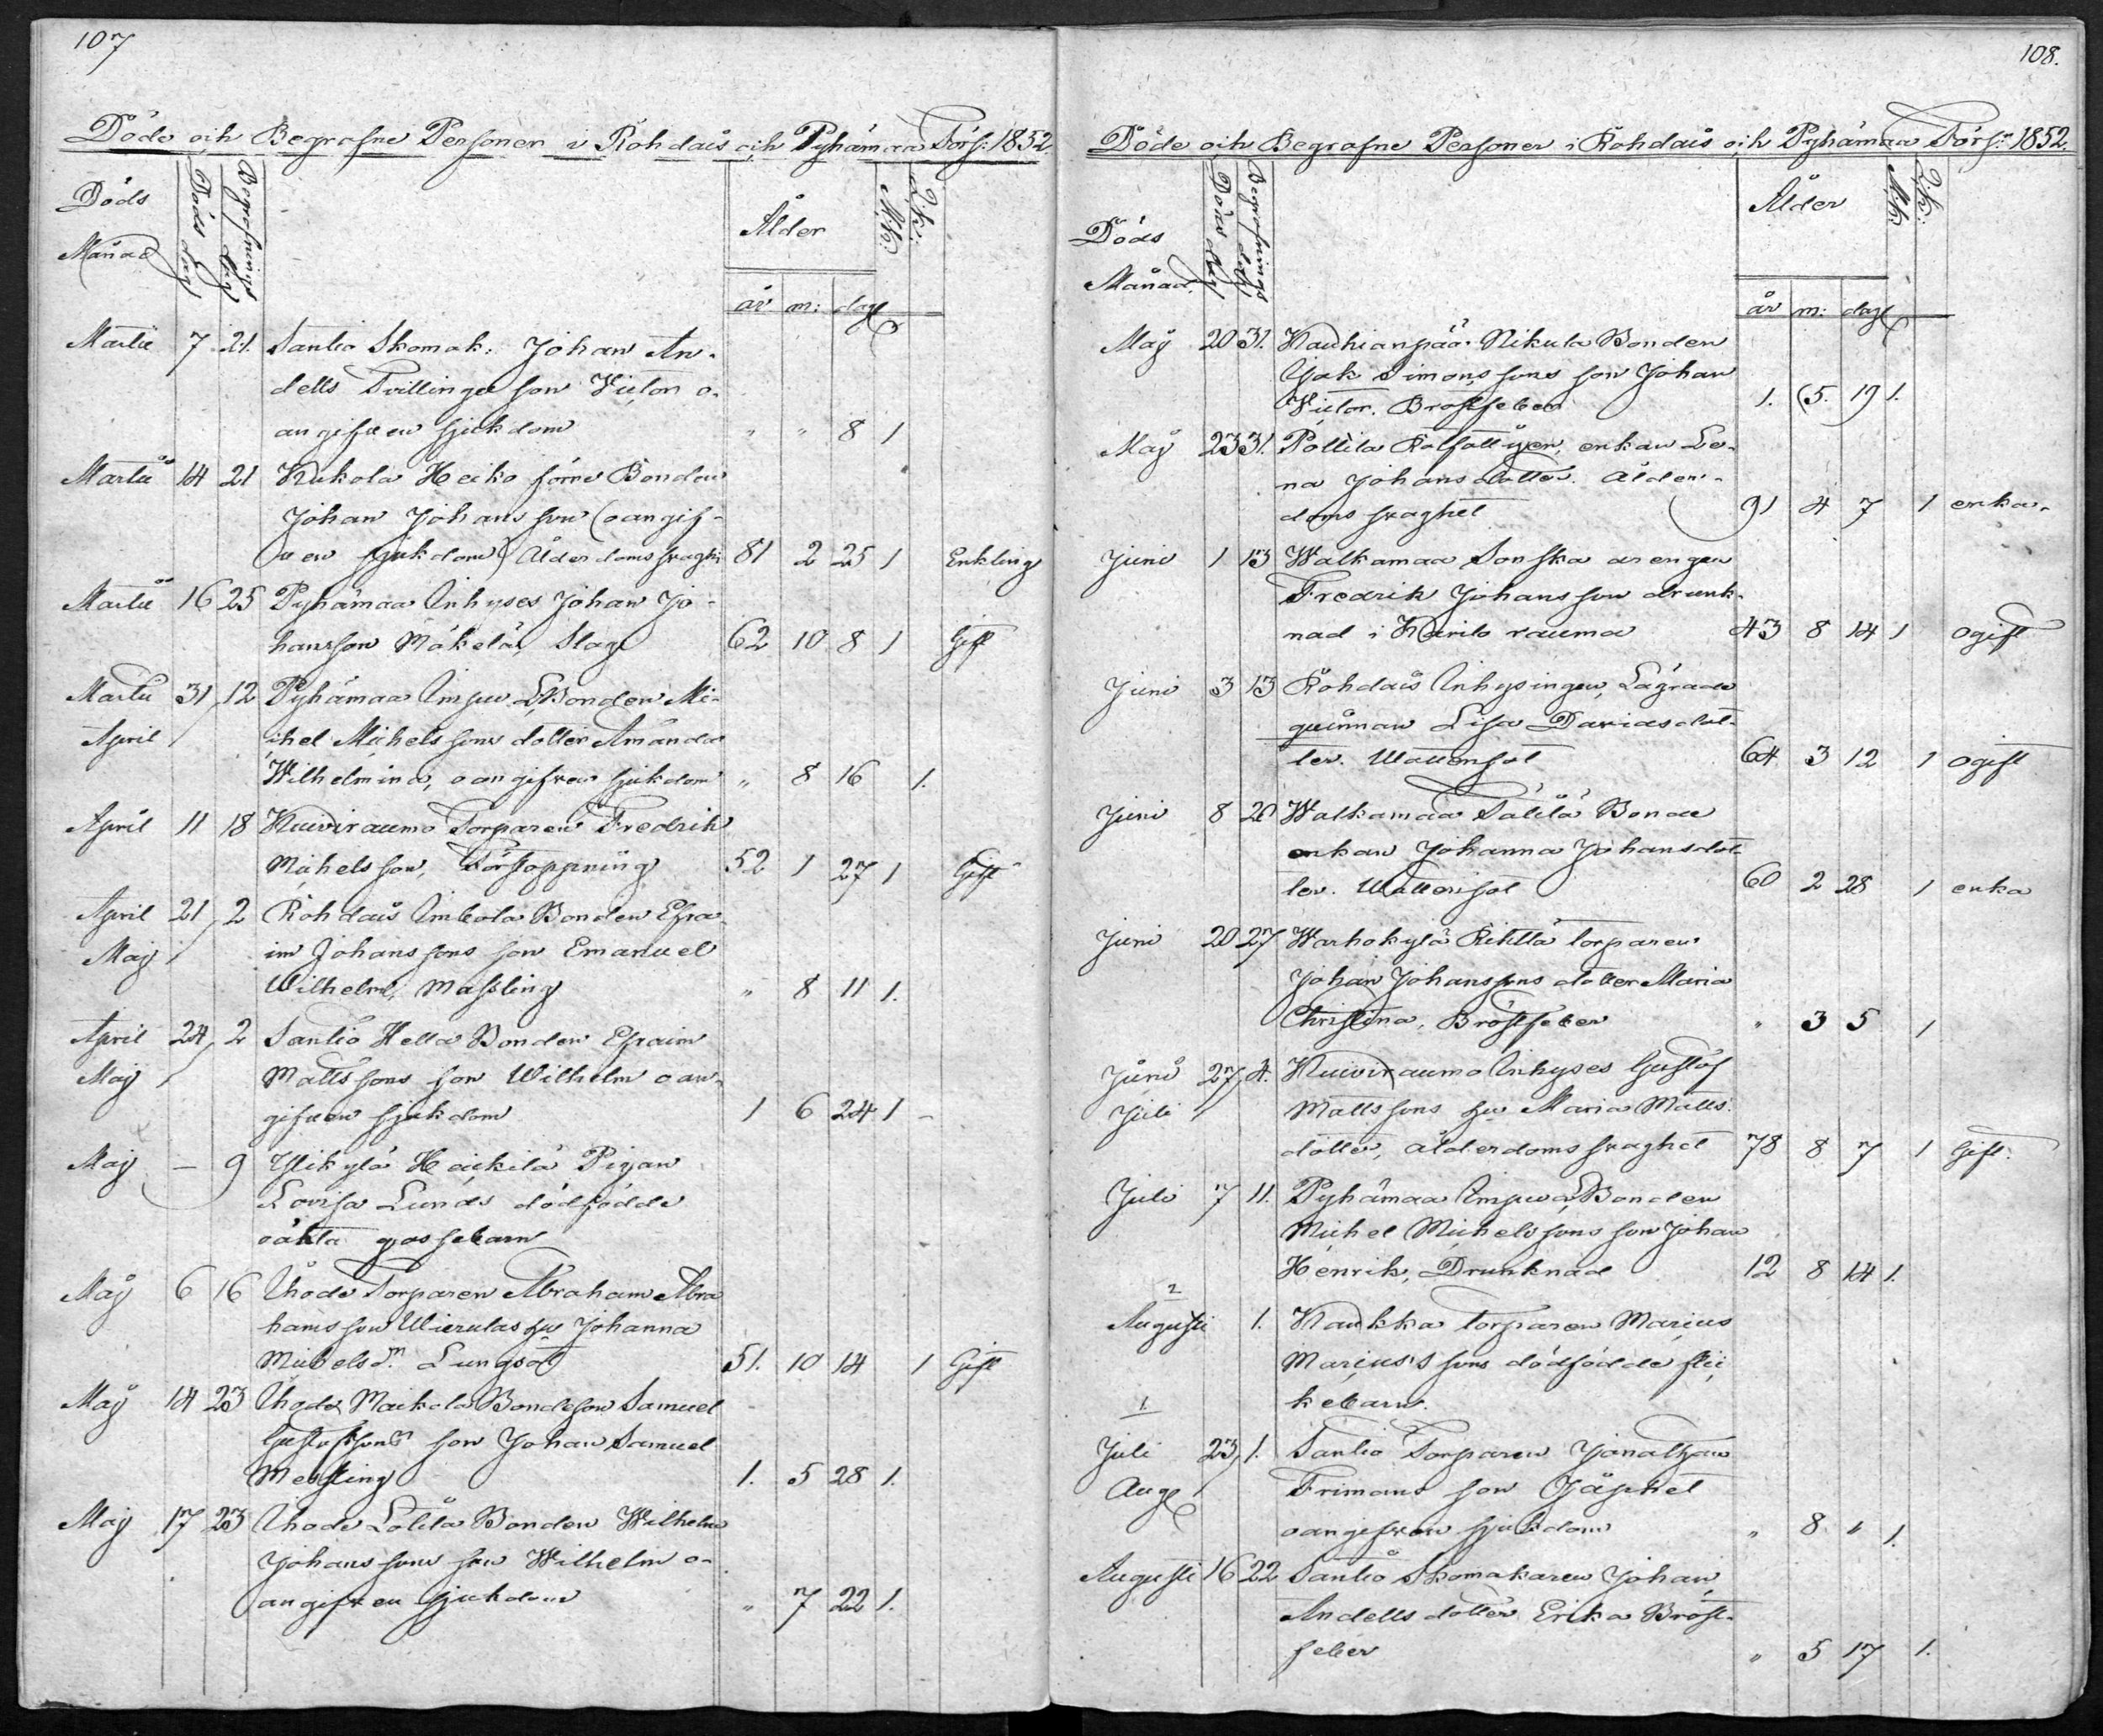 107
Döde och Begrafne Personer i Rohdais och Pyhämaa Förs: 1852.
Döds Månad
Döds dag
Begrafnings dag
Ålder
M.k:
Q.k:
år m: dag
Martii 7 21. Santio Skomak: Johan An-
dells Tvillinge son Victor o-
angifven sjukdom " " 8 1
Martii 14 21 Kukola Heiko förre Bonden
Johan Johansson (oangif-
ven sjukdom) Ålderdomssvagh: 81 2 25 1 Enkling
Martii 16 25 Pyhämaa Inhyses Johan Jo-
hansson Mäkelä, Slag 62 10 8 1 Gift
Martii 31, 12 Pyhämaa Bonden Mi-
April chel Michelssons dotter Amanda
Wilhelmina, oangifven sjukdom " 8 16 1.
April 11 18 Kuiviraumo Torparen Fredrik
Michelsson, Förstoppning 52 1 27 1 Gift
April 21, 2 Rohdais Bonden Efra-
Maj im Johanssons son Emanuel
Wilhelm, Massling " 8 11 1.
April 24, 2 Santio Hella Bonden Efraim
Maj Mattssons son Wilhelm oan-
gifven sjukdom 1 6 24 1 -
Maj — 9 Ylikylä Heickilä Pigan
Lovisa Lunds dödfödde
oäkta gossebarn
Maj 6 16 Uhode Torparen Abraham Abra
hamsson Wierulas hu Johanna
Michelsdr. Lungsot 51. 10 14 1 Gift
Maj 14 23 Uhode Maikola Bondeson Samuel
Gustafssons son Johan Samuel
Messling 1. 5 28 1.
Maj 17 23 Uhode Lolila Bonden Wilhelm
Johanssons son Wilhelm o-
angifven sjukdom " 7 22 1.
108.
Döde och Begrafne Personer i Rohdais och Pyhämaa Förs:n 1852.
Döds Månad.
Döds dag
Begrafnings dag
Ålder
M.k:
Q.k:
år m: dag
Maj 20 31. Kauhianpää Nikula Bonden
Isak Simonssons son Johan
Victor. Bröstfeber 1. 5. 19 1.
Maj 23 31. Pollila enkan Le-
na Johansdotter. Ålder-
doms svaghet 91 4 7 1 enka
Juni 1 13 Walkamaa Sonska drengen
Fredrik Johansson drunk-
nad i rauma 43 8 14 1 ogift
Juni 3 13 Rohdais Inhysingen, Lägrade
quinnan Lisa Davidsdot-
ter. Wattensot 64 3 12 1 ogift
Juni 8 20 Walkamaa Sälilä Bonde
enkan Johanna Johansdot-
ter. Wattensot 60 2 28 1 enka
Juni 20 27 Warhokylä Torparen
Johan Johanssons dotter Maria
Christina, Bröstfeber " 3 5 1
Juni 27, 4. Kuiviraumo Inhyses Gustaf
Juli Mattssons hu Maria Matts-
dotter, ålderdomssvaghet 78 8 7 1 Gift.
Juli 7 11. Pyhämaa Bonden
Michel Michelssons son Johan
Henrik, Drunknad 12 8 14 1.
2
Augusti 1. Kaukka torparen Marcus
Marcus's sons dödfödde flic
kebarn.
1.
Juli 23, 1. Santio Torparen Jonathan
Aug Frimans son Japhet
oangifven sjukdom " 8 " 1.
Augusti 16 22 Santio Skomakaren Johan
Andells dotter Erika Bröst-
feber " 5 17 1.